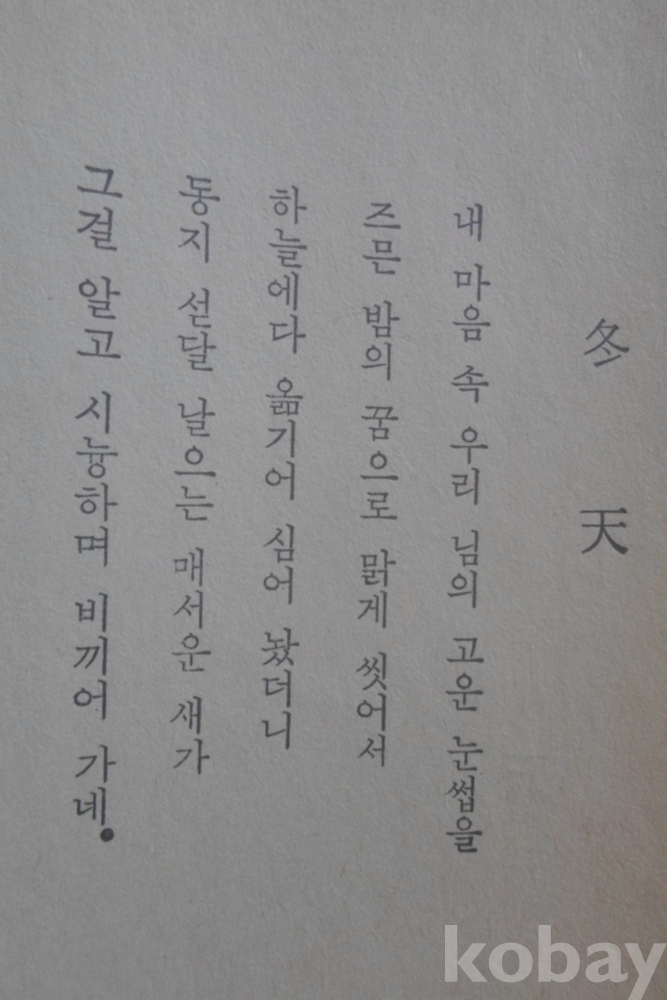 冬天
내 마음 속 우리 님의 고운 눈썹을
즈믄 밤의 꿈으로 맑게 씻어서
하늘에다 옮기어 심어 놨더니
동지 섣달 날으는 매서운 새가
그걸 알고 시늉하며 비끼어 가네.
kobay